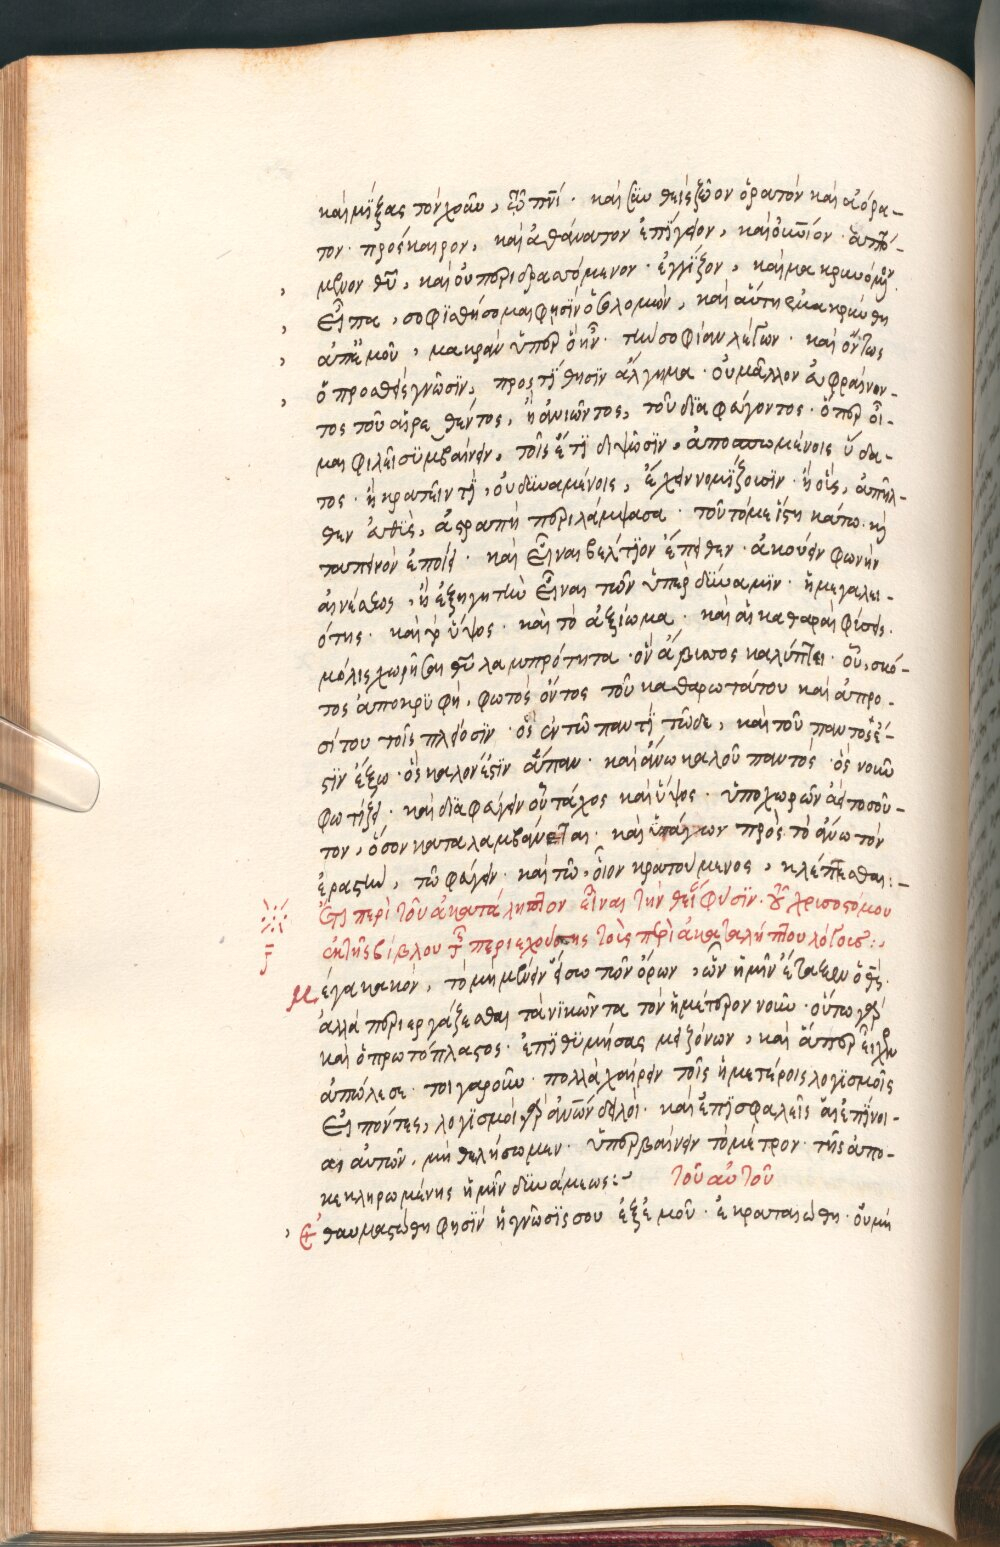 καὶ μίξας τὸν χοῦν, τῷ πνι· καὶ συνθεὶς ζῶον ὁρατὸν καὶ ἀόρα-
τον· πρόσκαιρον, καὶ ἀθάνατον ἐπίγειον, καὶ οὐνιον·
μενον θυ, καὶ οὐ περιδρασσόμενον· ἐγγίζον, καὶ μακρυνόμενον
Εἶπα, σοφισθήσομαι φησὶν ὁ σολομών, καὶ αὕτη ἐμακρύνθη
ἀπ' ἐμοῦ, μακρὰν ὑπὲρ ὃ ἦν· τὴν σοφίαν λέγων· καὶ ὄντως
ὁ προσθεὶς γνῶσιν, προστίθησιν ἄλγημα· οὐ μᾶλλον εὐφραίνον-
τος τοῦ αἱρεθέντος, ἢ ἀνιῶντος, τοῦ διαφυγόντος· ὅπερ οἶ-
μαι φιλεῖ συμβαίνειν, τοῖς ἔτι διψῶσιν, ἀποσπωμένοις ὕδα-
τος· ἢ κρατεῖν τι, οὐ δυναμένοις, ἔχειν νομίζουσιν· ἢ οἷς, ἀπῆλ-
θεν εὐθὺς, ἀστραπὴ περιλάμψασα· τοῦτό με ἵστη κάτω καὶ
ταπεινὸν ἐποίει· καὶ εἶναι βέλτιον ἔπειθεν· ἀκούειν φωνὴν
αἰνέσεως, ἢ ἐξηγητὴν εἶναι τῶν ὑπὲρ δύναμιν· ἡ μεγαλει-
ότης· καὶ τὸ ὕψος· καὶ τὸ ἀξίωμα· καὶ αἱ καθαραὶ φύσεις·
μόλις χωροῦσαι θυ λαμπρότητα· ὃν ἄβυσσος καλύπτει· οὗ, σκό-
τος ἀποκρυφὴ, φωτὸς ὄντος τοῦ καθαρωτάτου καὶ ἀπρο-
σίτου τοῖς πλείοσιν· ὃς ἐν τῷ παντὶ τῶδε, καὶ τοῦ παντὸς ἐ-
στὶν ἔξω· ὃς καλόν ἐστιν ἅπαν· καὶ ἄνω καλοῦ παντός· ὃς νοῦν
φωτίζει· καὶ διαφεύγει νοῦ τάχος καὶ ὕψος· ὑποχωρῶν ἀεὶ τοσοῦ-
τον, ὅσον καταλαμβάνεται· καὶ ὑπάγων πρὸς τὸ ἄνω τὸν
ἐραστὴν, τῷ φεύγειν· καὶ τῷ, οἷον κρατούμενος, κλέπτεσθαι:-
Ὅτι περὶ τοῦ ἀκατάληπτον εἶναι τὴν θείαν φύσιν· τοῦ χρυσοστόμου
ἐκ τῆς βίβλου τῆς περιεχούσης τοὺς περὶ ἀκαταλήπτου λόγους:
Μέγα κακὸν, τὸ μὴ μένειν ἔσω τῶν ὅρων, ὧν ἡμῖν ἔταξεν ὁ θς·
ἀλλὰ περιεργάζεσθαι τὰ νικῶντα τὸν ἡμέτερον νοῦν· οὕτω γὰρ
καὶ ὁ πρωτόπλαστος· ἐπιθυμήσας μειζόνων, καὶ ἅπερ εἶχεν
ἀπώλεσε· τοιγαροῦν· πολλὰ χαίρειν τοῖς ἡμετέροις λογισμοῖς
Εἰπόντες, λογισμοὶ γὰρ ἀνῶν δειλοὶ· καὶ ἐπισφαλεῖς αἱ ἐπίνοι-
αι αὐτῶν, μὴ θελήσωμεν· ὑπερβαίνειν τὸ μέτρον· τῆς ἀπο-
κεκληρωμένης ἡμῖν δυνάμεως:- τοῦ αὐτοῦ
Ἐθαυμαστώθη φησὶν ἡ γνῶσίς σου ἐξ ἐμοῦ· ἐκραταιώθη· οὐ μὴ